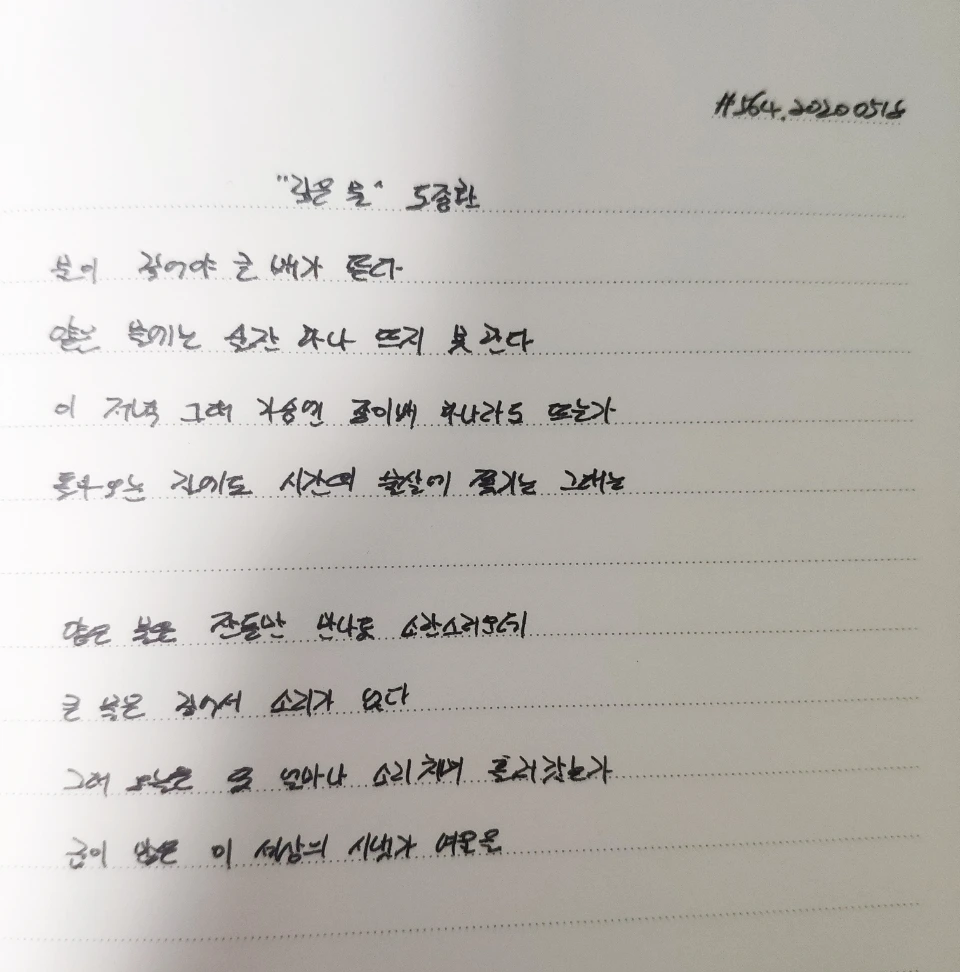 #564. 20200518
"깊은 물" 도종환
물이 깊어야 큰 배가 뜬다
얕은 물에는 술잔 하나 뜨지 못 한다
이 저녁 그대 가슴엔 종이배 하나라도 뜨는가
돌아오는 길에도 시간의 물살에 쫓기는 그대는
얕은 물은 잔돌만 만나도 소란스러운데
큰 물은 깊어서 소리가 없다
그대 오늘은 또 얼마나 소리치며 흘러갔는가
굽이 많은 이 세상의 시냇가 여울을